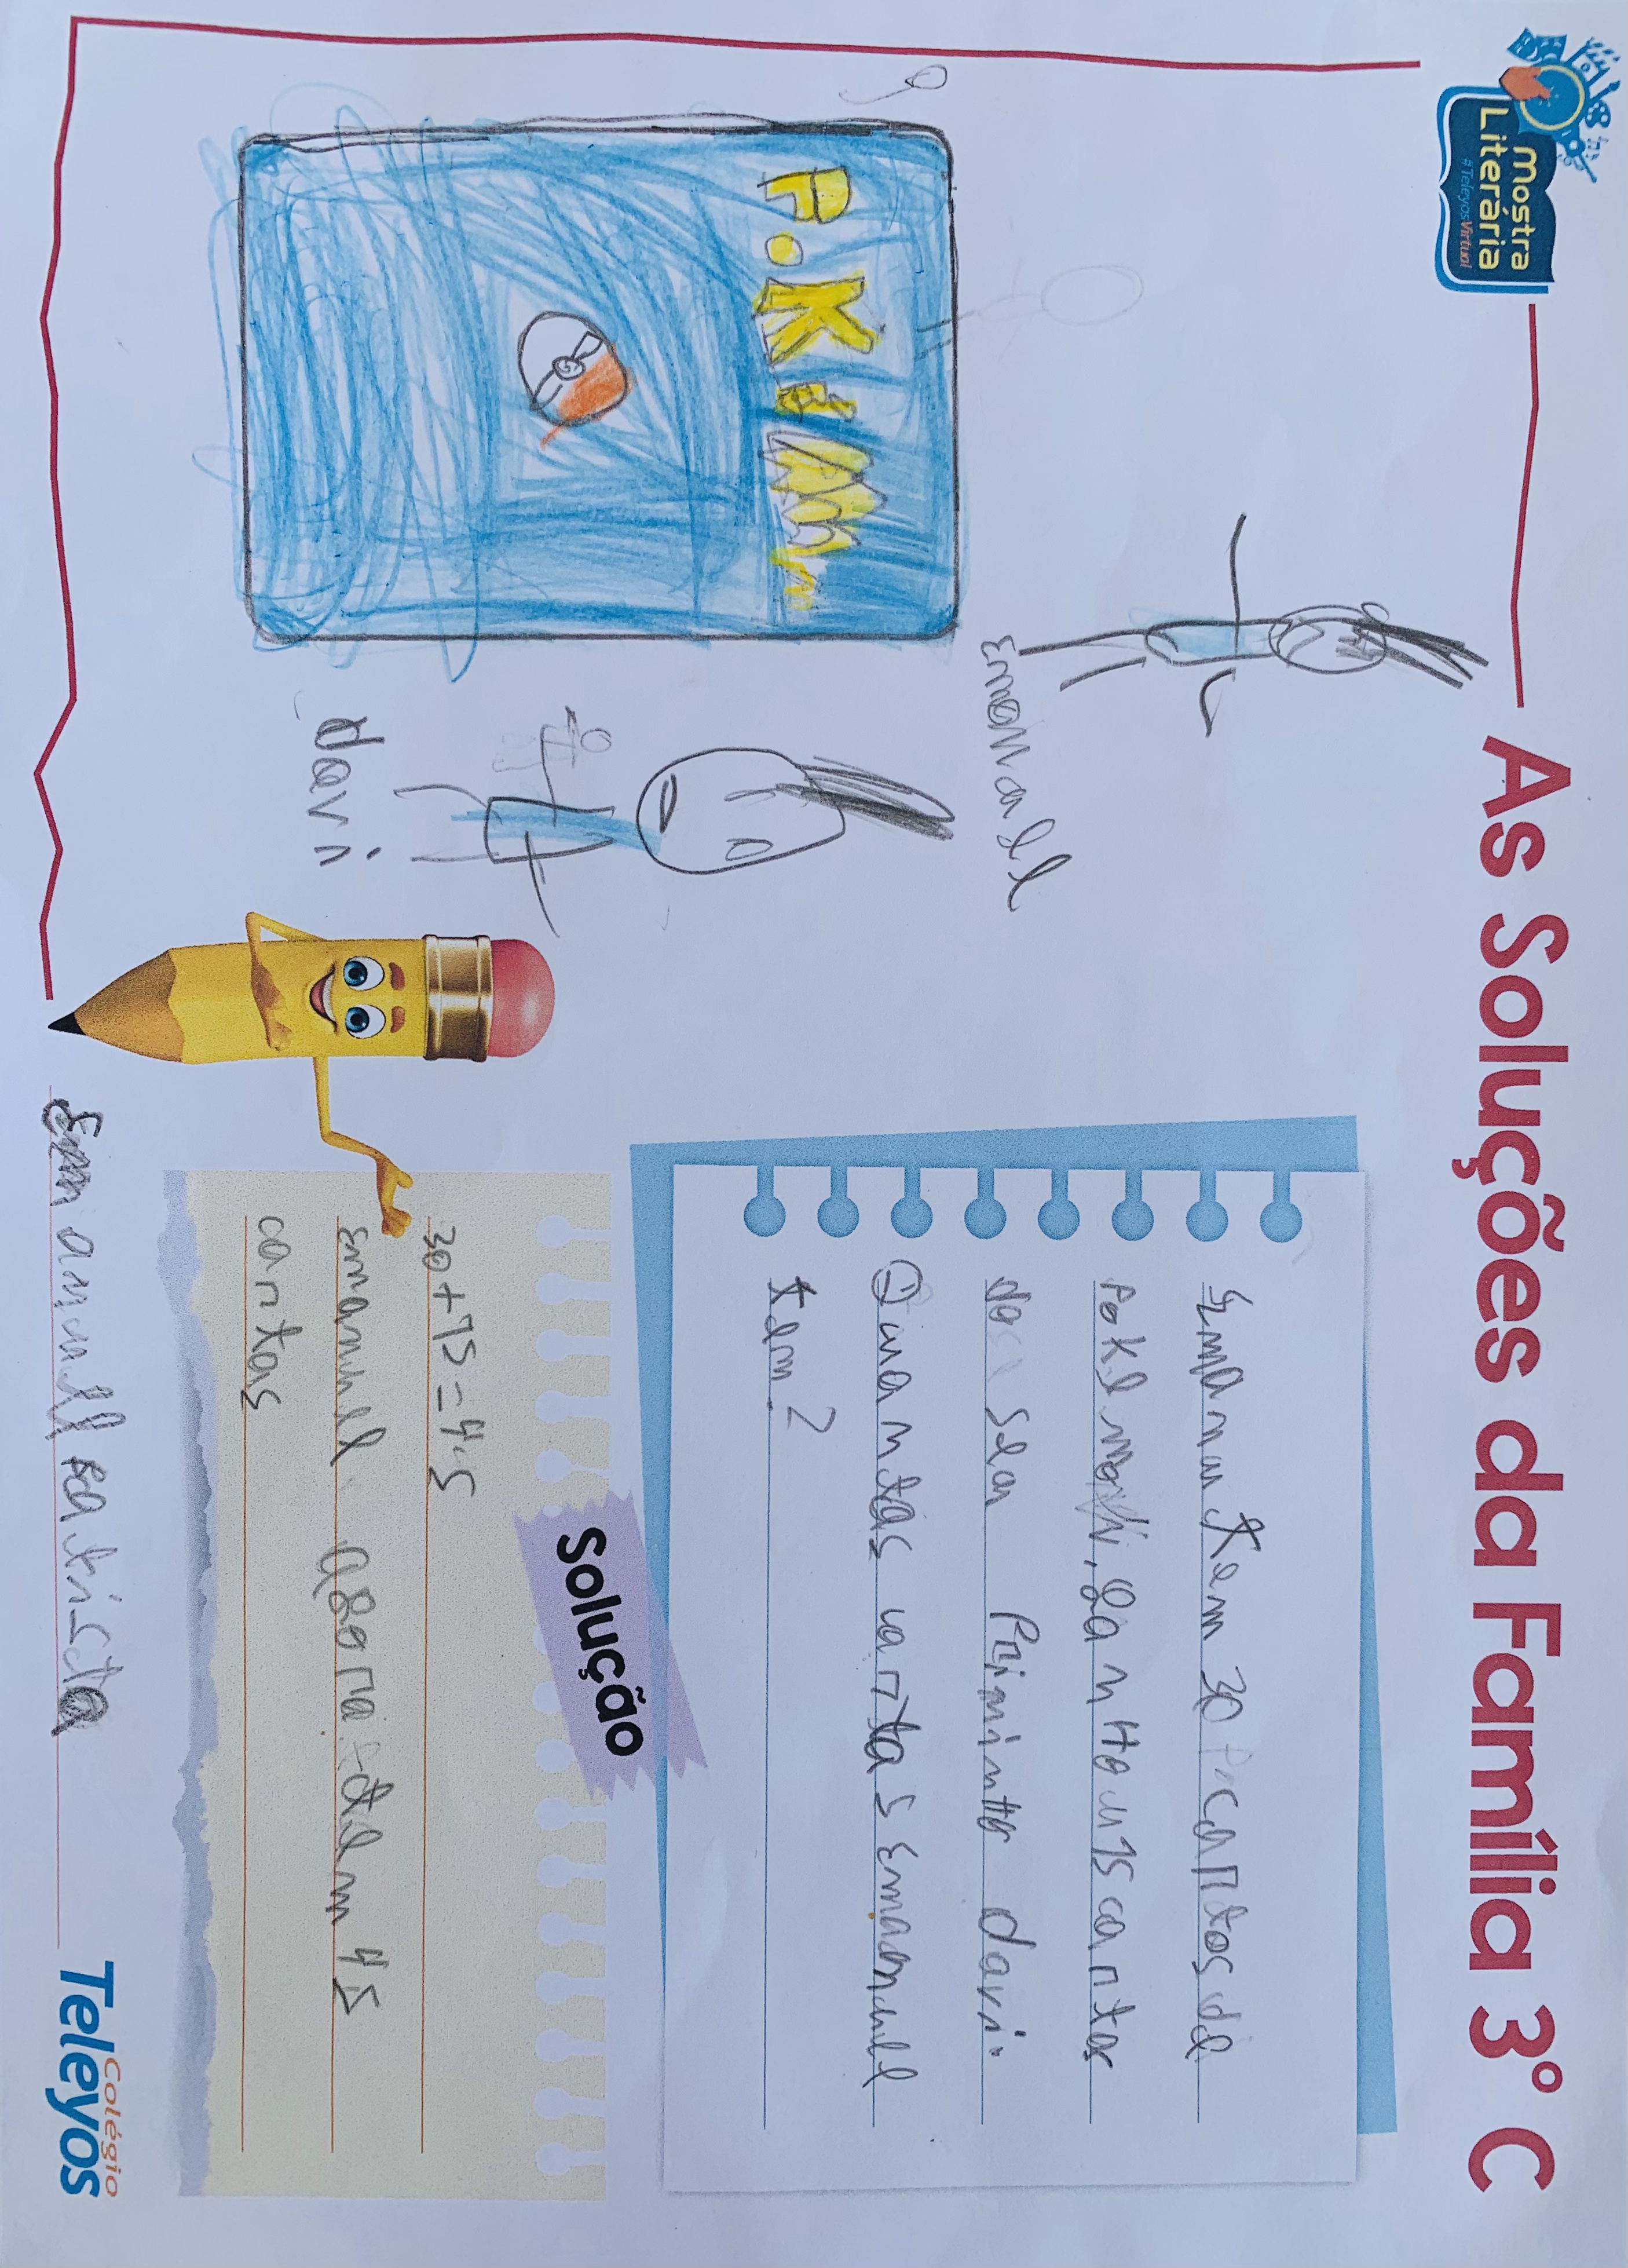 Mostra
Literária
#TeleyosVirtual
As Soluções da Família 3° C
POKéMon
Emanuel
davi
Emanuu tem 30 cartas de
Pokemon, ganhou 15 cartas
do seu Priminho davi.
Quantas cartas Emanuell
tem?
Solução
30+15=45
Emanuel agora tem 45
cartas
Emanuell Batista
Colégio
Teleyos